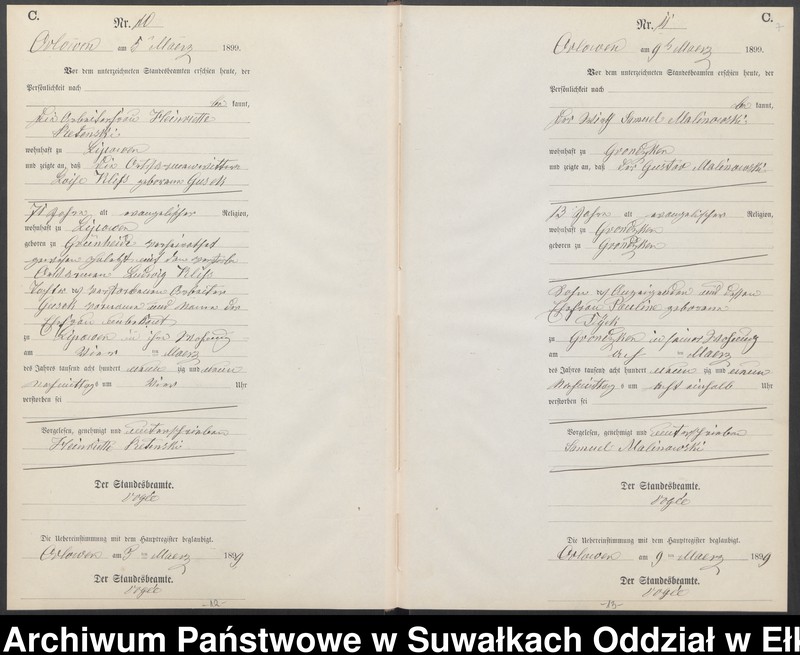 C.
Nr. 10
Orlowen am 5ten Maerz 1899.
Vor dem unterzeichneten Standesbeamten erschien heute, der
Persönlichkeit nach
be kannt,
die Arbeiterfrau Heinriette
wohnhaft zu Lipowen
und zeigte an, daß die
Loise Kleß geborene Gusek
71 Jahre alt evangelischer Religion,
wohnhaft zu Lipowen
geboren zu Grünheide verheirathet
gewesen zuletzt mit dem
Ludwig Kleß
Tochter des verstorbenen Arbeiter
Gusek und Name der
Ehefrau unbekannt
zu Lipowen in ihre Wohnung
am Vier ten Maerz
des Jahres tausend acht hundert neun zig und neun
Nachmittag s um Vier Uhr
verstorben sei
Vorgelesen, genehmigt und unterschrieben
Heinriette
Der Standesbeamte.
Vogée
Die Uebereinstimmung mit dem Hauptregister beglaubigt.
Orlowen am 5 ten Maerz 1899
Der Standesbeamte.
Vogée
-12-
C.
Nr. 11
Orlowen am 9ten Maerz 1899.
Vor dem unterzeichneten Standesbeamten erschien heute, der
Persönlichkeit nach
be kannt,
der Wirth Samuel Malinowski
wohnhaft zu Grondzken
und zeigte an, daß der Gustav Malinowski
13 Jahre alt evangelischer Religion,
wohnhaft zu Grondzken
geboren zu Grondzken
Sohn des Anzeigenden und dessen
Ehefrau Pauline geborenen
zu Grondzken in seiner Wohnung
am acht ten Maerz
des Jahres tausend acht hundert neun zig und neun
Nachmittag s um acht einhalb Uhr
verstorben sei
Vorgelesen, genehmigt und unterschrieben
Samuel Malinowski
Der Standesbeamte.
Vogée
Die Uebereinstimmung mit dem Hauptregister beglaubigt.
Orlowen am 9 ten Maerz 1899
Der Standesbeamte.
Vogée
-13-
Archiwum Państwowe w Suwałkach Oddział w Ełk